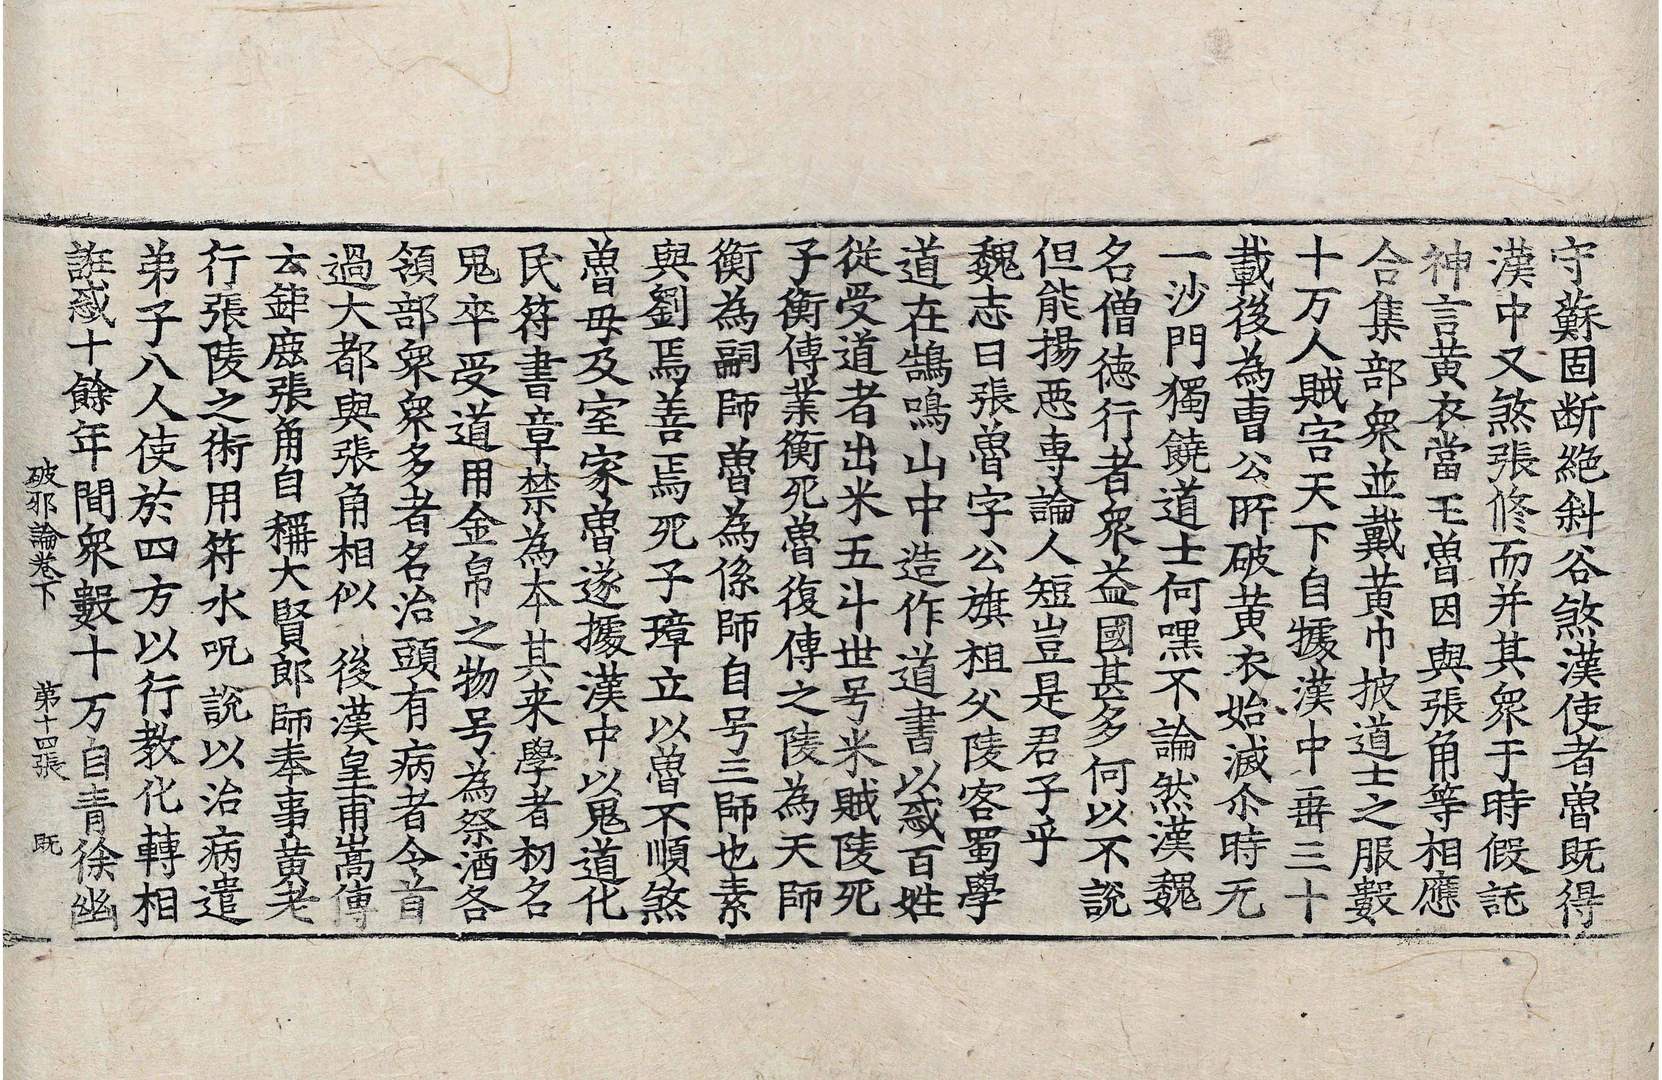 守蘇固断絶斜谷煞漢使者曽既得
漢中又煞張修而并其衆于時假託
神言黄衣當王曽因與張角等相應
合集部衆並戴黄巾披道士之服數
十万人賊害天下自據漢中垂三十
載後為曺公所破黄衣始滅尒時无
一沙門獨饒道士何嘿不論然漢魏
名僧徳行者衆益國甚多何以不説
但能揚悪専論人短豈是君子乎
魏志曰張曽字公旗祖父陵客蜀學
道在鵠鳴山中造作道書以惑百姓
從受道者出米五斗世号米賊陵死
子衡傳業衡死曽復傳之陵為天師
衡為嗣師曽為係師自号三師也素
與劉焉善焉死子璋立以曽不順煞
曽毋及室家曽遂據漢中以鬼道化
民符書章禁為本其来學者初名
鬼卒受道用金帛之物号為祭酒各
領部衆衆多者名治頭有病者令首
過大都與張角相似 後漢皇甫嵩傳
云鉅鹿張角自稱大賢郎師奉事黄老
行張陵之術用符水呪説以治病遣
弟子八人使於四方以行教化轉相
誑惑十餘年間衆數十万自青徐幽
破邪論卷下 第十四張 既